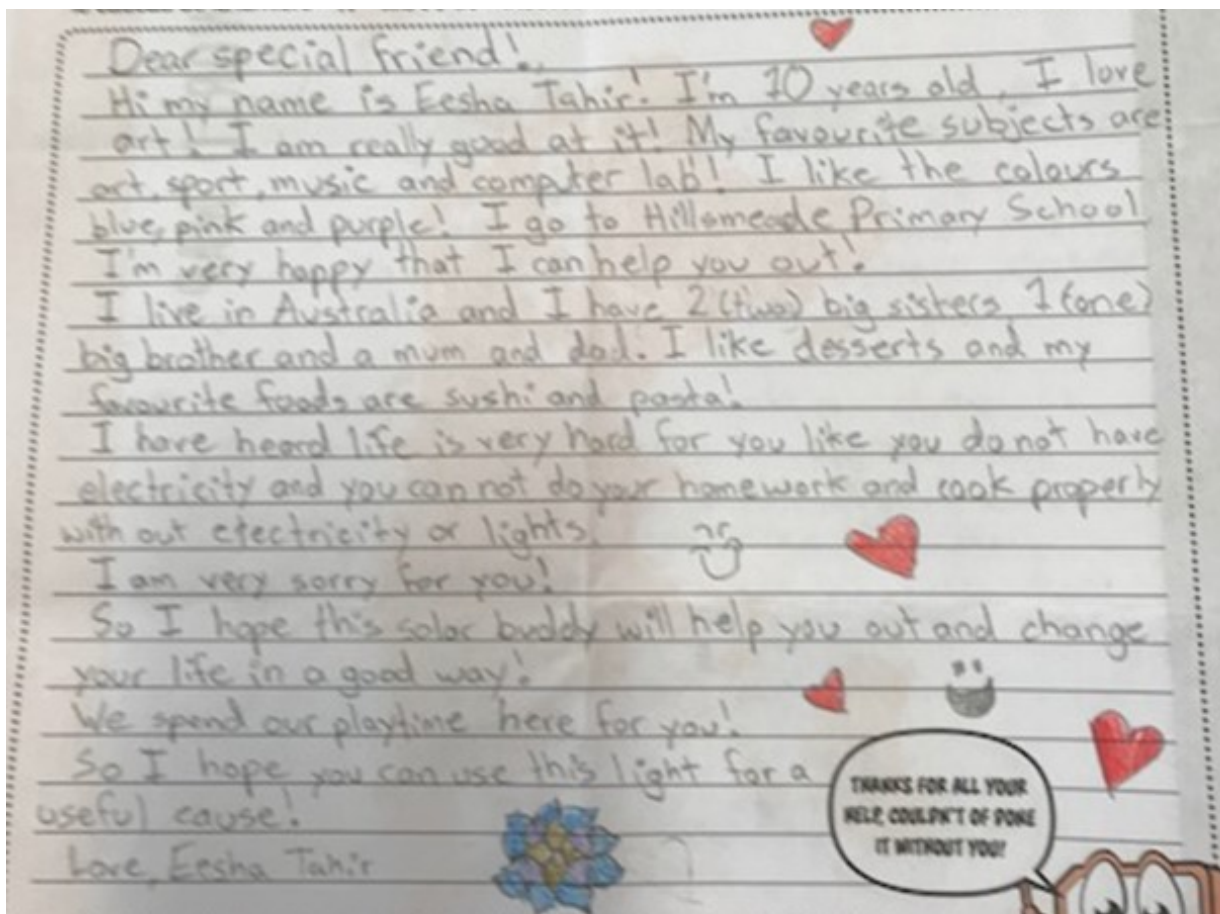 Dear special friend!
Hi my name is Eesha Tahir! I'm 10 years old, I love
art! I am really good at it! My favourite subjects are
art, sport, music and computer lab! I like the colours
blue, pink and purple! I go to Hillsmeade Primary School
I'm very happy that I can help you out!
I live in Australia and I have 2 (two) big sisters, 1 (one)
big brother and a mum and dad. I like desserts and my
favourite foods are sushi and pasta!
I have heard life is very hard for you like you do not have
electricity and you can not do your homework and cook properly
with out electricity or lights.
I am very sorry for you!
So I hope this solar buddy will help you out and change
your life in a good way!
We spend our playtime here for you!
So I hope you can use this light for a
useful cause!
Love, Eesha Tahir
THANKS FOR ALL YOUR
HELP, COULDN'T OF DONE
IT WITHOUT YOU!